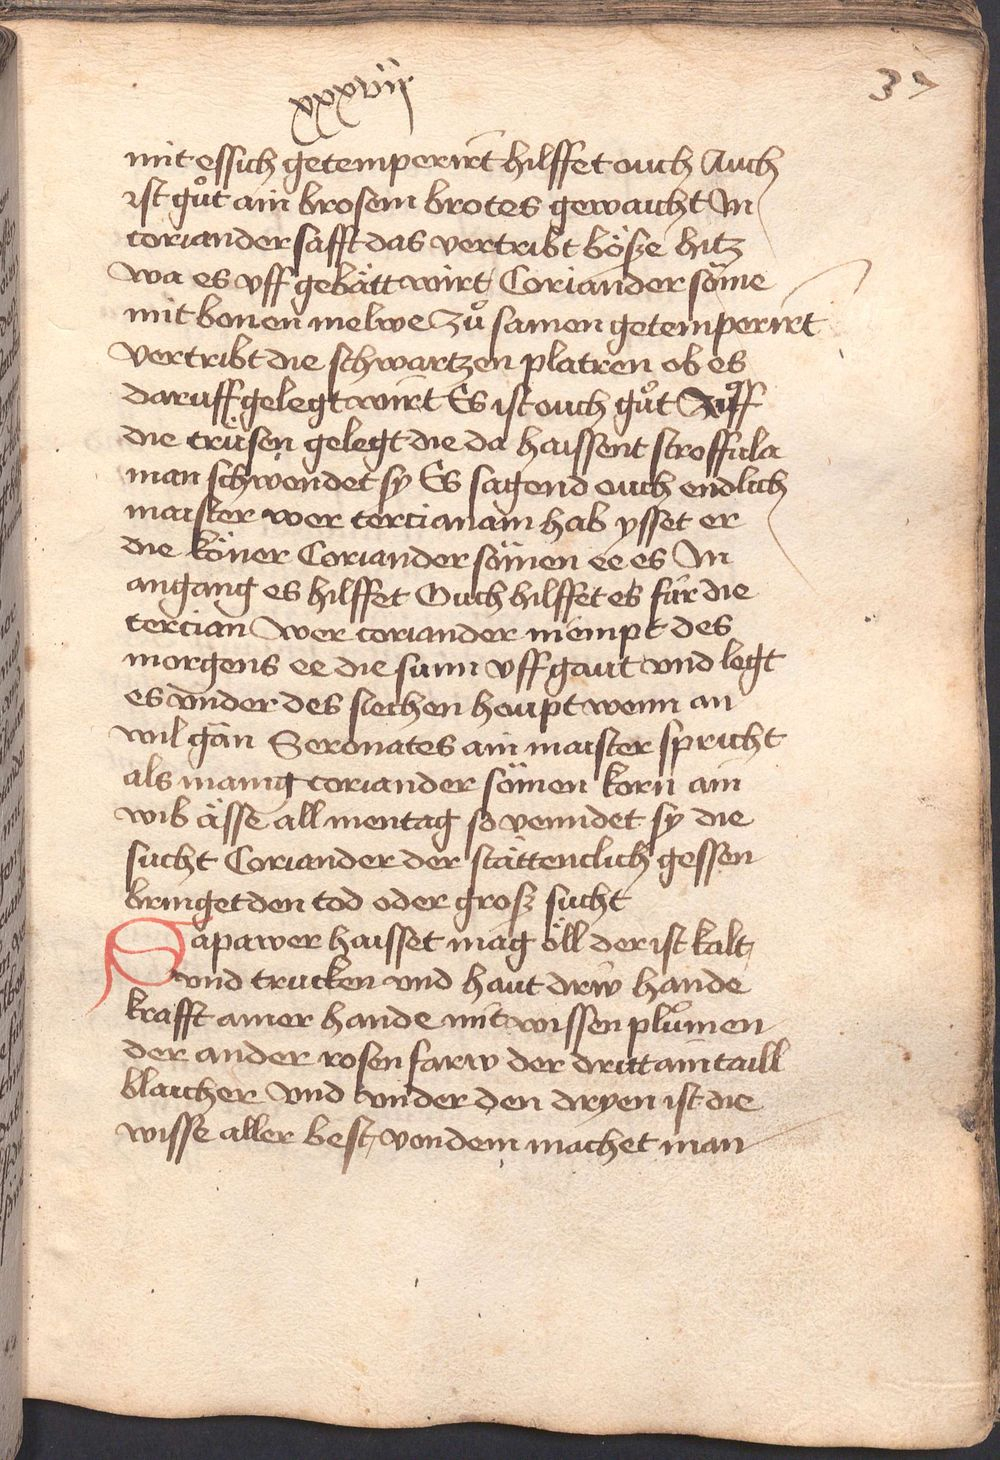 xxxvij
37
mit essich getemperirt hilffet ouch Auch
ist guͦt ain brosem brotes gewaicht In
coriander safft das vertribt böße hitz
wa es vff gebätt wirt Coriander some
mit bonen melwe zuͦ samen getemperirt
vertribt die schwartzen platren ob es
daruff gelegt wirt Es ist ouch guͦt
die trüsen gelegt die da haissent stroffula
man schwendet sy Es sagend ouch endlich
maister wer tercianam hab ysset er
die köner Coriander sömen ee es In
angang es hilffet Ouch hilffet es für die
tercian Wer coriander niempt des
morgens ee die sunn vff gaut vnd legt
es vnder des siechen houpt wenn an
wil gān Seronates ain maister spricht
als manig coriander sömen korn ain
wib ässe all mentag so vermidet sy die
sucht Coriander der stättenclich gessen
bringet den tod oder grosz sucht
Papawer haisset mag öll der ist kalt
vnd trucken vnd haut driw hande
krafft ainer hande mit wissen pluͦmen
der ander rosen farw der dritt ain taill
blaicher Vnd vnder den dryen ist die
wisse aller best, von dem machet man